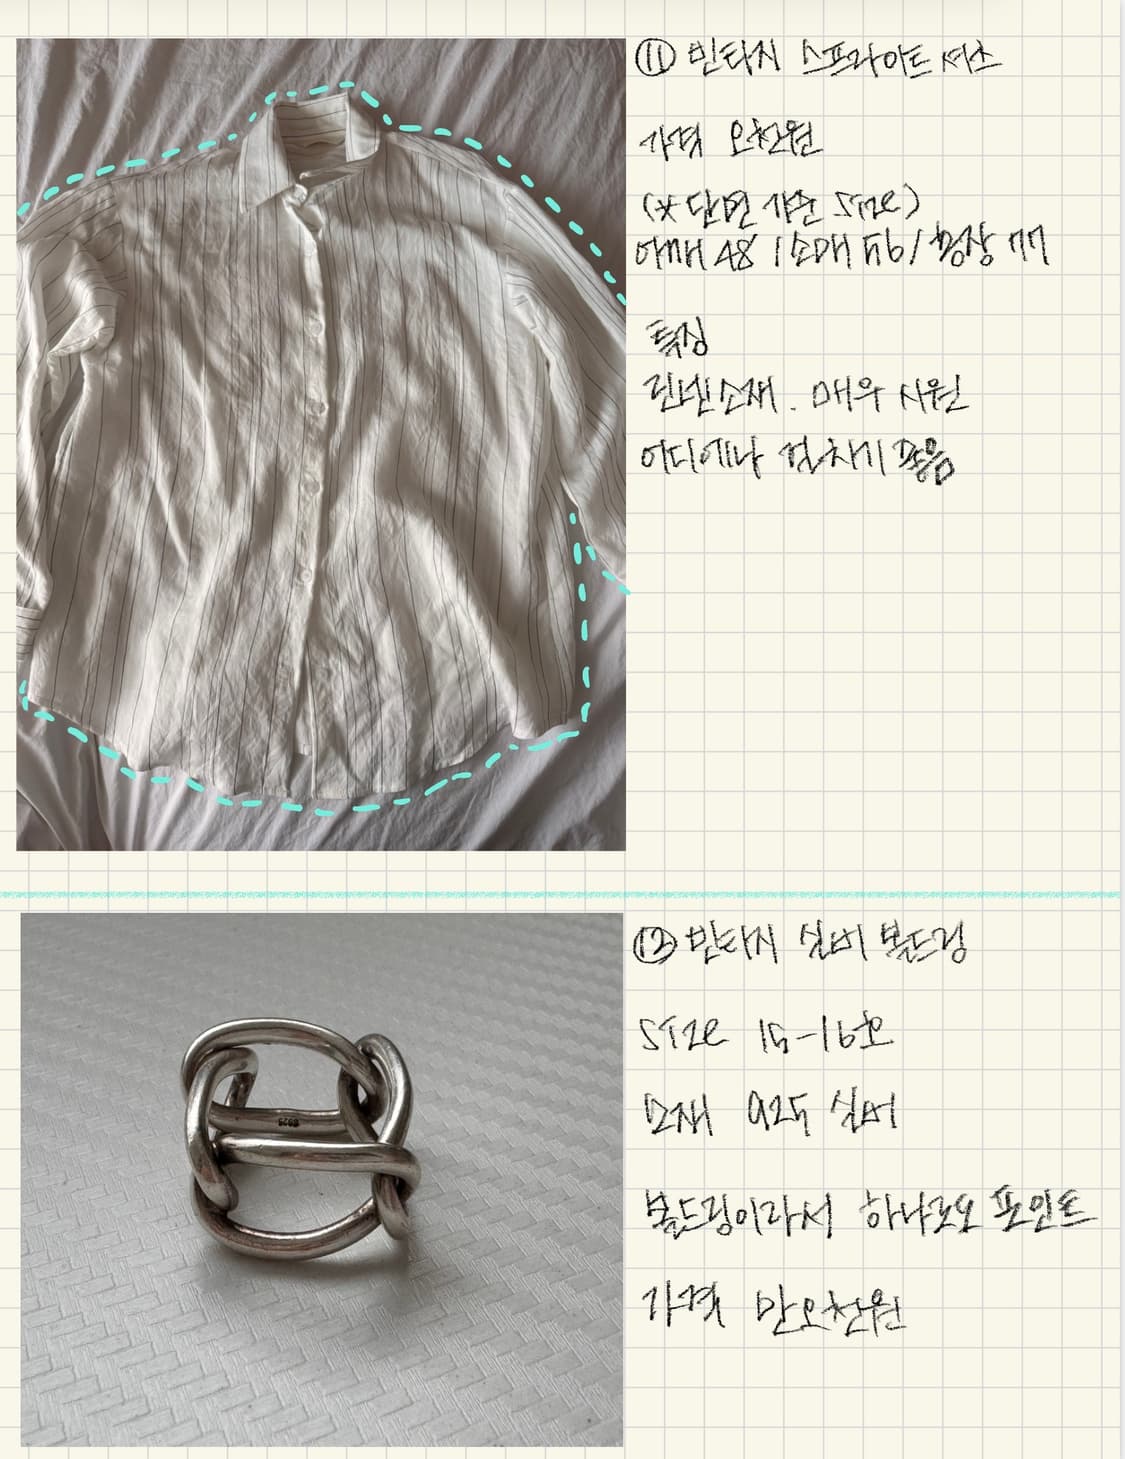 ⑪ 빈타지 스프라이트 셔츠
가격 오천원
(* 단면 기준 size)
어깨 48 / 소매 56 / 총장 77
특징
린넨소재. 매우 시원
어디에나 걸치기 좋음
⑫ 빈타지 실버 볼드링
size 15-16호
소재 925 실버
볼드링이라서 하나로도 포인트
가격 만오천원